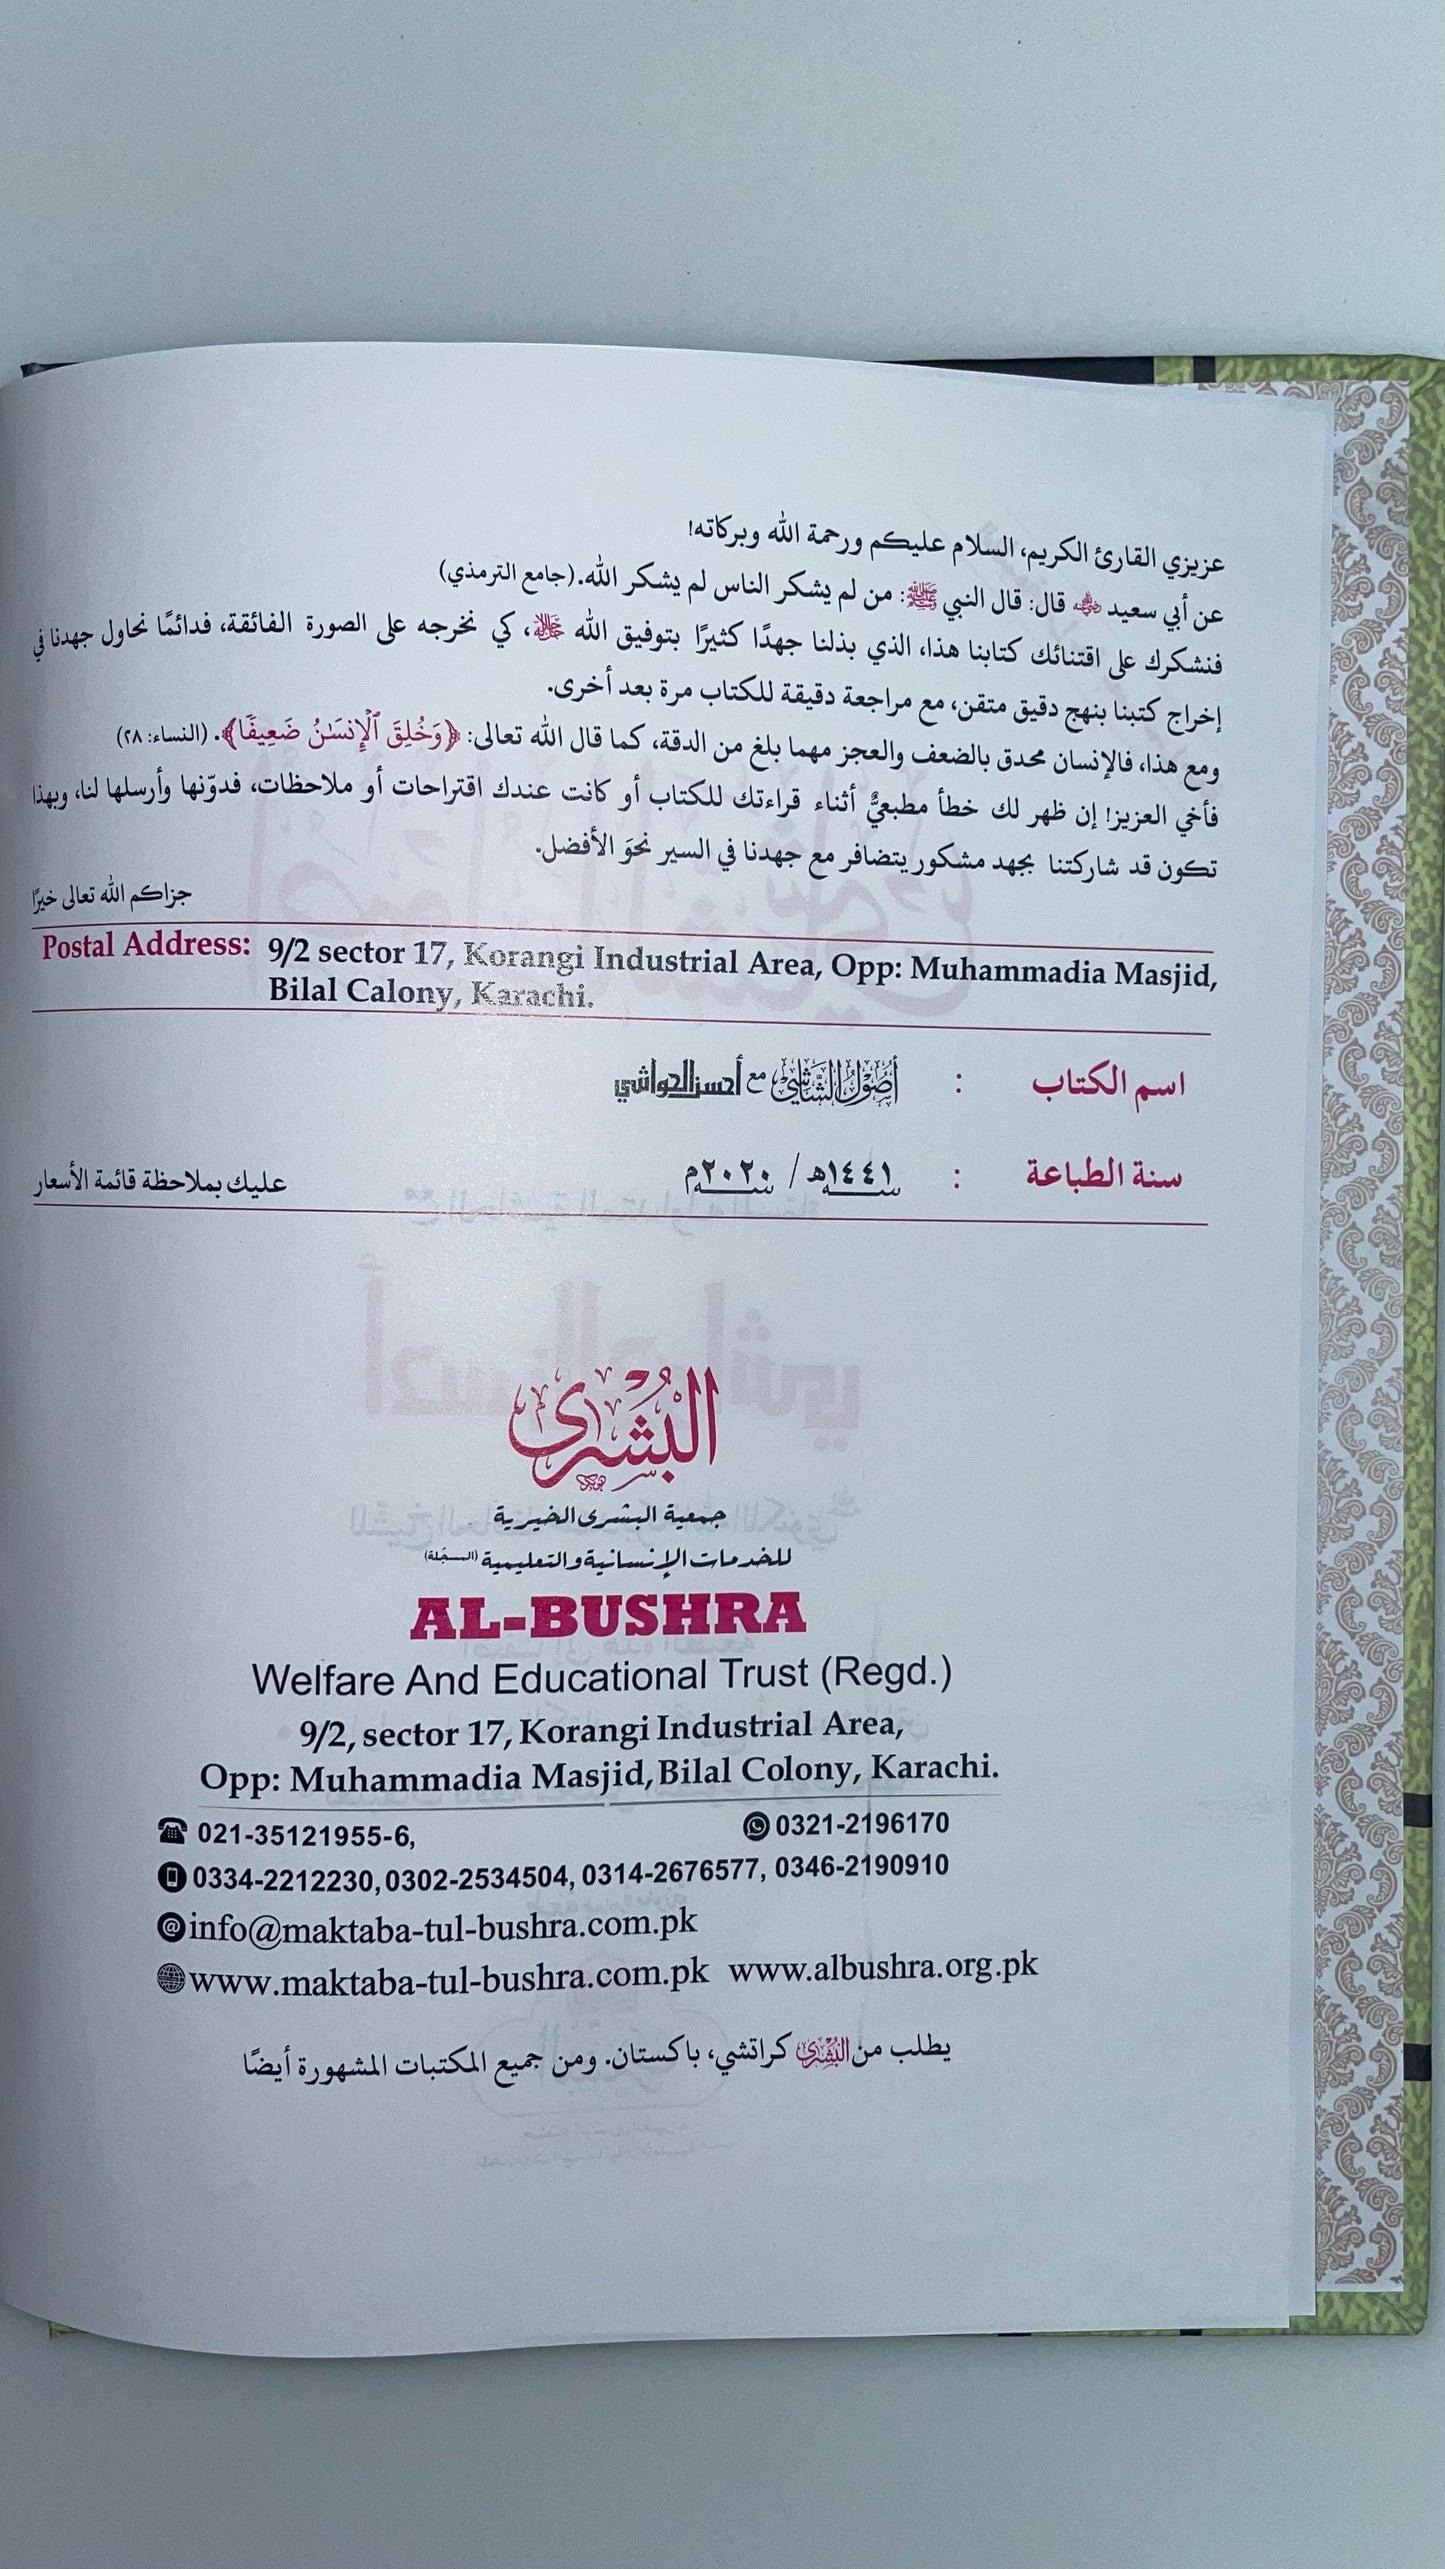 عزيزي القارئ الكريم، السلام عليكم ورحمة الله وبركاته!
عن أبي سعيد ﷺ قال: قال النبي ﷺ: من لم يشكر الناس لم يشكر الله. (جامع الترمذي)
فنشكرك على اقتنائك كتابنا هذا، الذي بذلنا جهدًا كثيرًا بتوفيق الله ﷻ، كي نخرجه على الصورة الفائقة، فدائمًا نحاول جهدنا في
إخراج كتبنا بنهج دقيق متقن، مع مراجعة دقيقة للكتاب مرة بعد أخرى.
ومع هذا، فالإنسان محدق بالضعف والعجز مهما بلغ من الدقة، كما قال الله تعالى: ﴿وَخُلِقَ ٱلْإِنسَـٰنُ ضَعِيفًا﴾. (النساء: ٢٨)
فأخي العزيز! إن ظهر لك خطأ مطبعيٌّ أثناء قراءتك للكتاب أو كانت عندك اقتراحات أو ملاحظات، فدوّنها وأرسلها لنا، وبهذا
تكون قد شاركتنا بجهد مشكور يتضافر مع جهدنا في السير نحوَ الأفضل.
جزاكم الله تعالى خيرًا
Postal Address: 9/2 sector 17, Korangi Industrial Area, Opp: Muhammadia Masjid,
Bilal Calony, Karachi.
اسم الكتاب : أُصُوْلُ الشَّاشِيْ مع أحسن الحواشي
سنة الطباعة : ١٤٤١هـ / ٢٠٢٠م
عليك بملاحظة قائمة الأسعار
البُشْرى
جمعية البشرى الخيرية
للخدمات الإنسانية والتعليمية (المسجّلة)
AL-BUSHRA
Welfare And Educational Trust (Regd.)
9/2, sector 17, Korangi Industrial Area,
Opp: Muhammadia Masjid, Bilal Colony, Karachi.
021-35121955-6, 0321-2196170
0334-2212230, 0302-2534504, 0314-2676577, 0346-2190910
info@maktaba-tul-bushra.com.pk
www.maktaba-tul-bushra.com.pk www.albushra.org.pk
يطلب من البُشْرى كراتشي، باكستان. ومن جميع المكتبات المشهورة أيضًا